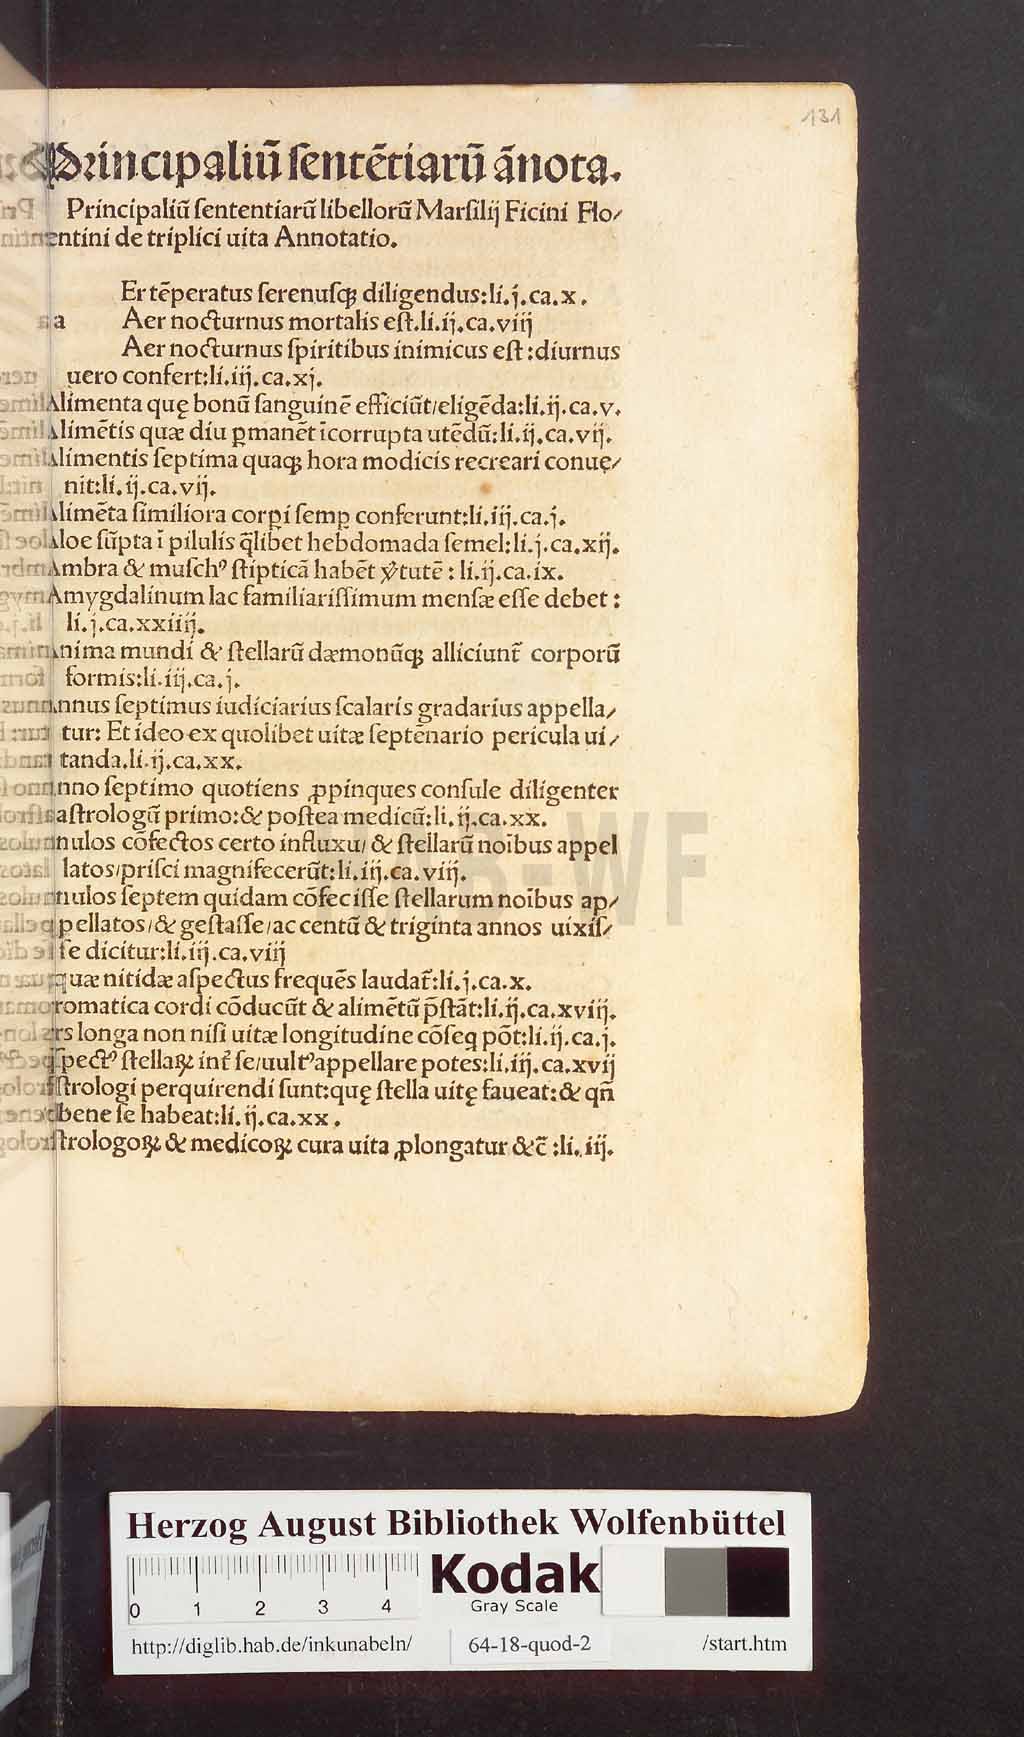 131
Principaliū ſentētiarū ānota.
Principaliū ſententiarū libellorū Marſilij Ficini Flo⸗
entini de triplici uita Annotatio.
Er tēperatus ſerenuſqꝫ diligendus:li.j.ca.x.
a Aer nocturnus mortalis eſt.li.ij.ca.viij
Aer nocturnus ſpiritibus inimicus eſt:diurnus
uero confert:li.iij.ca.xj.
Alimenta quę bonū ſanguinē efficiūt/eligēda:li.ij.ca.v.
Alimētis quæ diu ꝑmanēt īcorrupta utēdū:li.ij.ca.vij.
Alimentis ſeptima quaqꝫ hora modicis recreari conuę⸗
nit:li.ij.ca.vij.
Alimēta ſimiliora corꝑi ſemꝑ conferunt:li.iij.ca.j.
Aloe sūpta ī pilulis q̄libet hebdomada ſemel:li.j.ca.xij.
Ambra & muſchꝰ ſtipticā habēt v̄tutē : li.ij.ca.ix.
Amygdalinum lac familiariſſimum menſæ eſſe debet :
li.j.ca.xxiiij.
Anima mundi & ſtellarū dæmonūqꝫ alliciunt̄ corporū
formis:li.iij.ca.j.
nnus ſeptimus iudiciarius ſcalaris gradarius appella⸗
tur: Et ideo ex quolibet uitæ ſeptēnario pericula ui⸗
tanda.li.ij.ca.xx.
nno ſeptimo quotiens ꝓpinques conſule diligenter
aſtrologū primo:& poſtea medicū:li.ij.ca.xx.
nulos cōfectos certo influxu/ & ſtellarū noībus appel
latos/priſci magnifecerūt:li.iij.ca.viij.
nulos ſeptem quidam cōfeciſſe ſtellarum noībus ap⸗
pellatos/& geſtaſſe/ac centū & triginta annos uixiſ⸗
ſe dicitur:li.iij.ca.viij
quæ nitidæ aſpectus frequēs laudat̄:li.j.ca.x.
romatica cordi cōducūt & alimētū p̄ſtāt:li.ij.ca.xviij.
rs longa non niſi uitæ longitudine cōſeq̇ pōt:li.ij.ca.j.
ſpectꝰ ſtellaꝝ int̄ ſe/uultꝰ appellare potes:li.iij.ca.xvij
ſtrologi perquirendi ſunt:quę ſtella uitę faueat:& qn̄
bene ſe habeat:li.ij.ca.xx.
ſtrologoꝝ & medicoꝝ cura uita ꝓlongatur &c̄ :li.iij.
HAB-WF
Herzog August Bibliothek Wolfenbüttel
0 1 2 3 4
Kodak
Gray Scale
http://diglib.hab.de/inkunabeln/ 64-18-quod-2 /start.htm